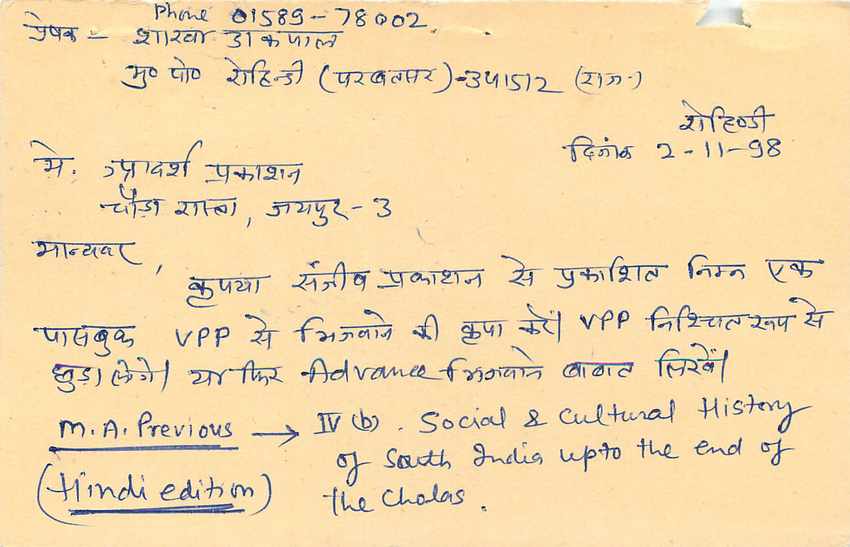 Phone 01589-78002
प्रेषक - शाखा डाकपाल
मु० पो० रोहिन्डी (परबतसर) - 341512 (राज.)
रोहिण्डी
दिनांक 2-11-98
मे. आदर्श प्रकाशन
चौड़ा रास्ता, जयपुर - 3
मान्यवर,
कृपया संजीव प्रकाशन से प्रकाशित निम्न एक
पासबुक VPP से भिजवाने की कृपा करें। VPP निश्चित रूप से
छुड़ा लेंगे। या फिर Advance भिजवाने बाबत लिखें।
M.A. Previous → IV (b). Social & Cultural History
of South India upto the end of
(Hindi edition) the Cholas.